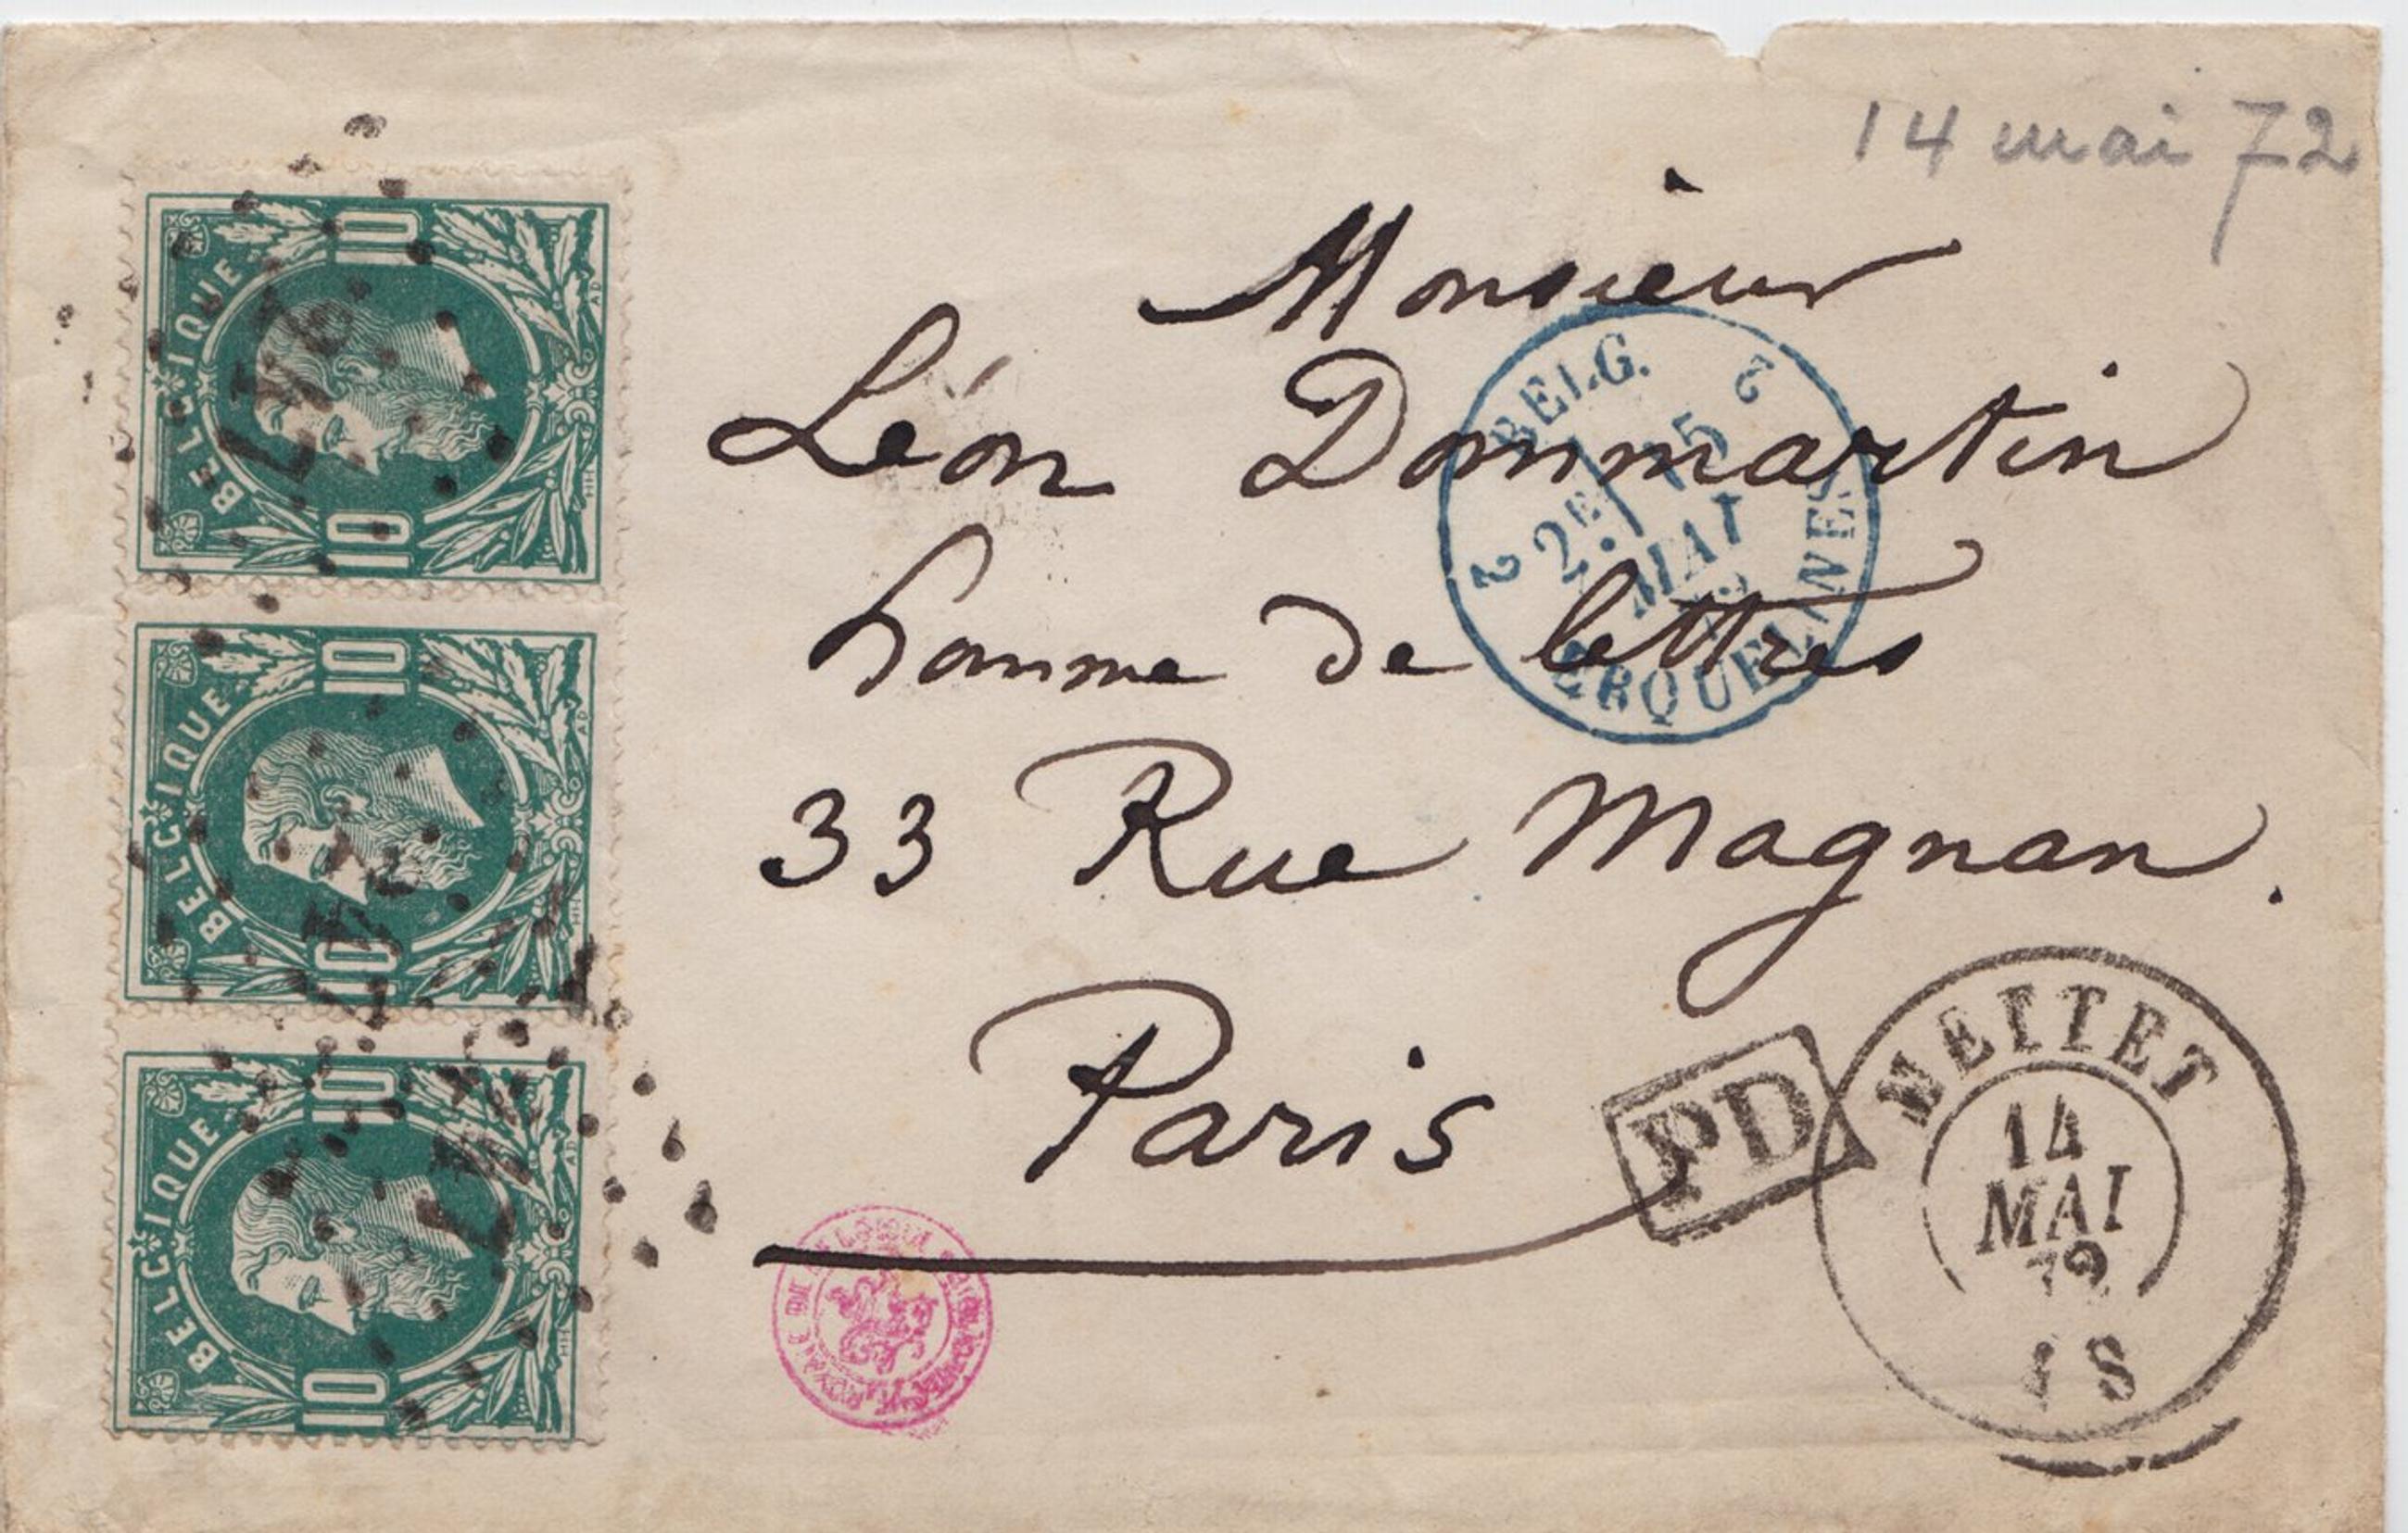 14 mai 72
Monsieur
Léon Dommartin
homme de lettres
33 Rue Magnan.
Paris
BELG. 2
15
2E MAI
2
ERQUELINES
PD
METTET
14
MAI
72
18
10
BELGIQUE
10
10
BELGIQUE
10
10
BELGIQUE
10